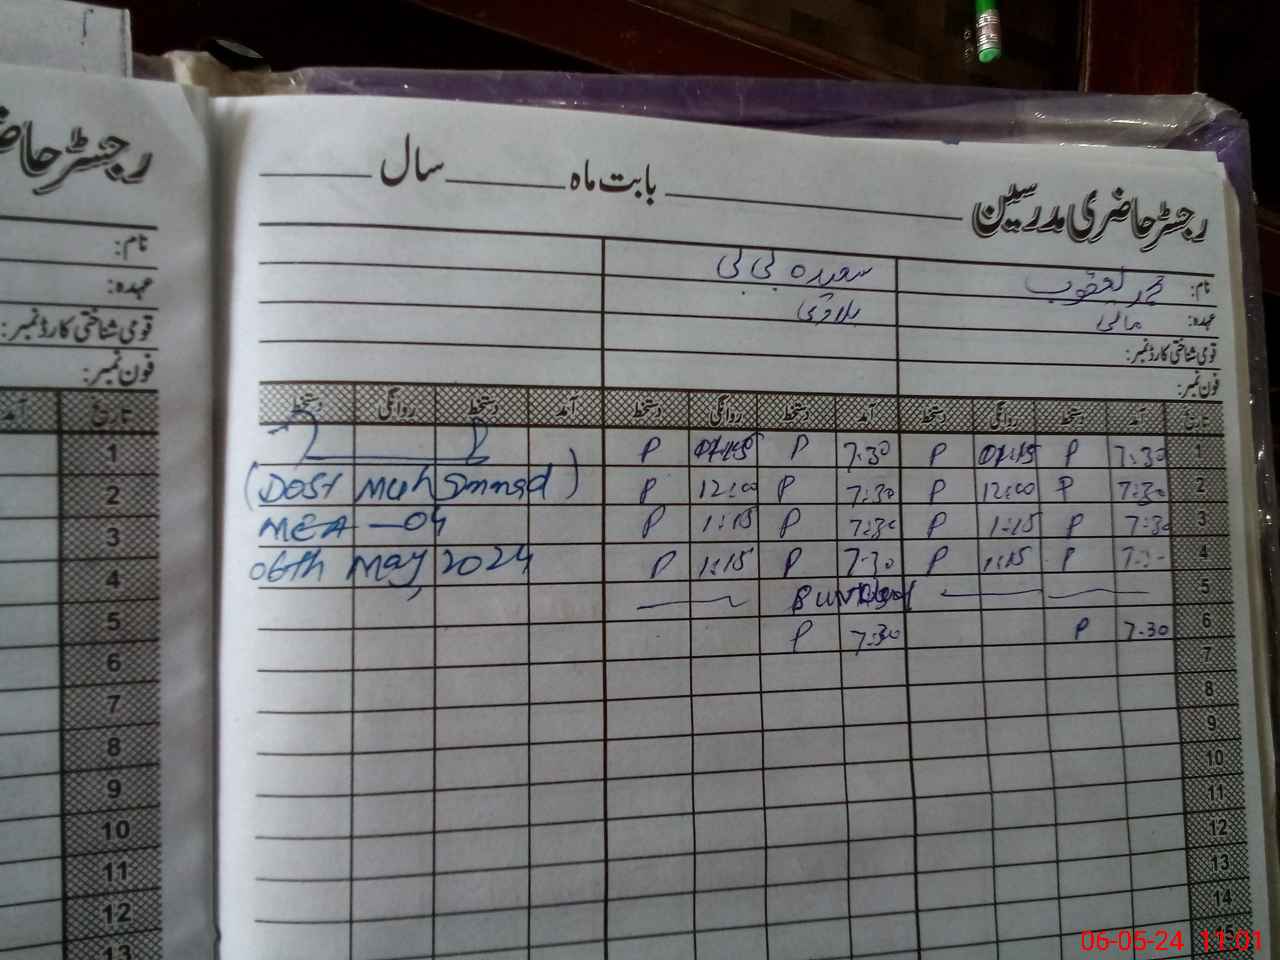 رجسٹر حاضری
نام:
عہدہ:
قومی شناختی کارڈ نمبر:
فون نمبر:
تاریخ آمد
1
2
3
4
5
6
7
8
9
10
11
12
13
رجسٹر حاضری مدرسین ______ بابت ماہ ______ سال ______
نام: محمد یعقوب سعیدہ بی بی
عہدہ: مالی
قومی شناختی کارڈ نمبر:
فون نمبر:
تاریخ آمد دستخط روانگی دستخط آمد دستخط روانگی دستخط آمد دستخط روانگی دستخط
1 7:30 P 01:15 P 7:30 P P
2 7:30 P 12:00 P 7:30 P 12:00 P
(Dost Muhammad)
3 7:30 P 1:15 P 7:30 P 1:15 P
MEA-04
4 P 1:15 P 7:30 P 1:15 P
06th May, 2024
5
6 7.30 P 7:30 P
7
8
9
10
11
12
13
14
06-05-24 11:01